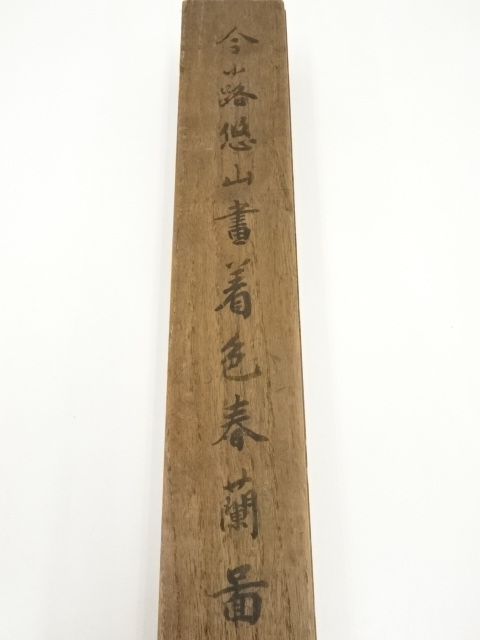 今小路悠山畫着色春蘭啚